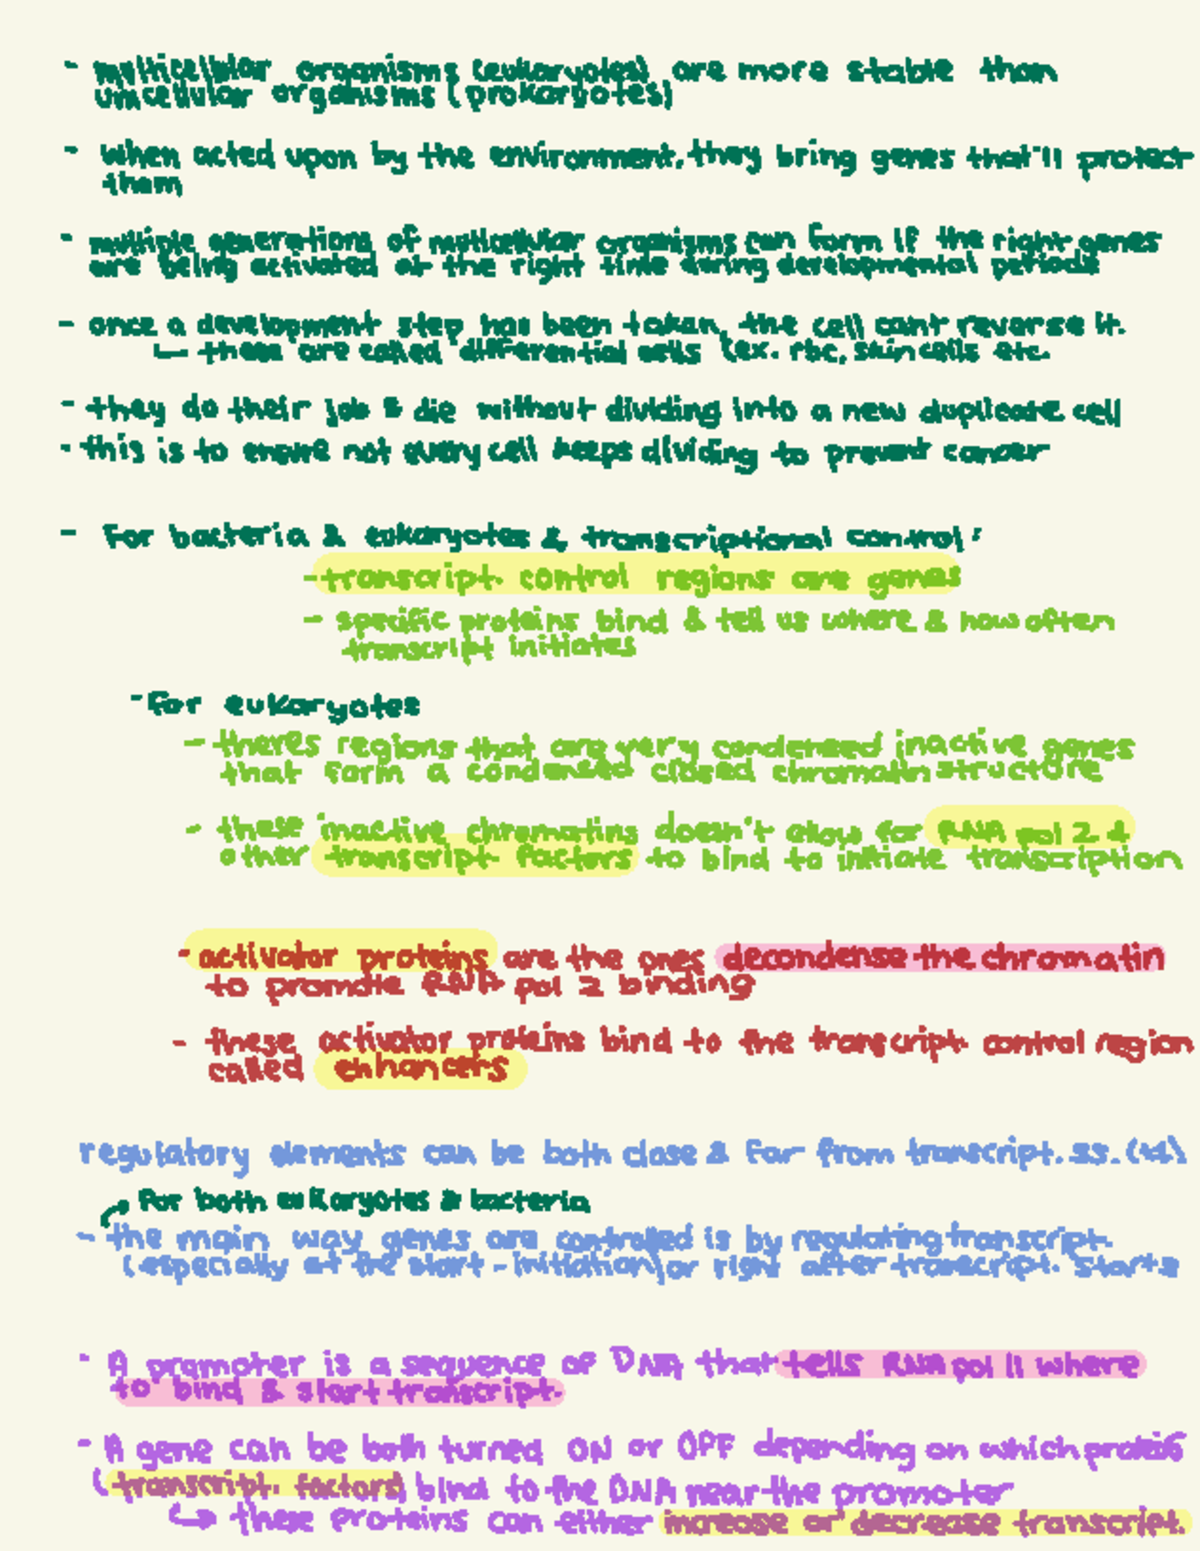 - multicellular organisms (eukaryotes) are more stable than
unicellular organisms (prokaryotes)
- when acted upon by the environment, they bring genes that'll protect
them
- multiple generations of multicellular organisms can form if the right genes
are being activated at the right time during developmental periods
- once a development step has been taken, the cell cant reverse it.
↳ these are called differential cells (ex. rbc, skin cells etc.
- they do their job & die without dividing into a new duplicate cell
- this is to ensure not every cell keeps dividing to prevent cancer
- For bacteria & eukaryotes & transcriptional control:
- transcript. control regions are genes
- specific proteins bind & tell us where & how often
transcript initiates
- for eukaryotes
- theres regions that are very condensed inactive genes
that form a condensed closed chromatin structure
- these inactive chromatins doesn't allow for RNA pol 2 &
other transcript factors to bind to initiate transcription
- activator proteins are the ones decondense the chromatin
to promote RNA pol 2 binding
- these activator proteins bind to the transcript. control region
called enhancers
regulatory elements can be both close & far from transcript. ss. (+1)
for both eukaryotes & bacteria
- the main way genes are controlled is by regulating transcript.
(especially at the start - initiation) or right after transcript. starts
- A promoter is a sequence of DNA that tells RNA pol II where
to bind & start transcript.
- A gene can be both turned ON or OFF depending on which proteins
(transcript. factors) bind to the DNA near the promoter
↳ these proteins can either increase or decrease transcript.